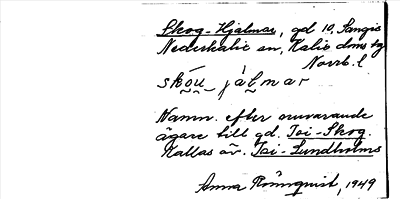 Skog-Hjalmar, gd 10, Sangis
Nederkalix sn, Kalix doms hg
Norrb. l
skóu jàlmar
Namn. efter nuvarande
ägare till gd. Toi-Skog.
Kallas äv. Toi-Lundholms
Anna Rönnquist, 1949